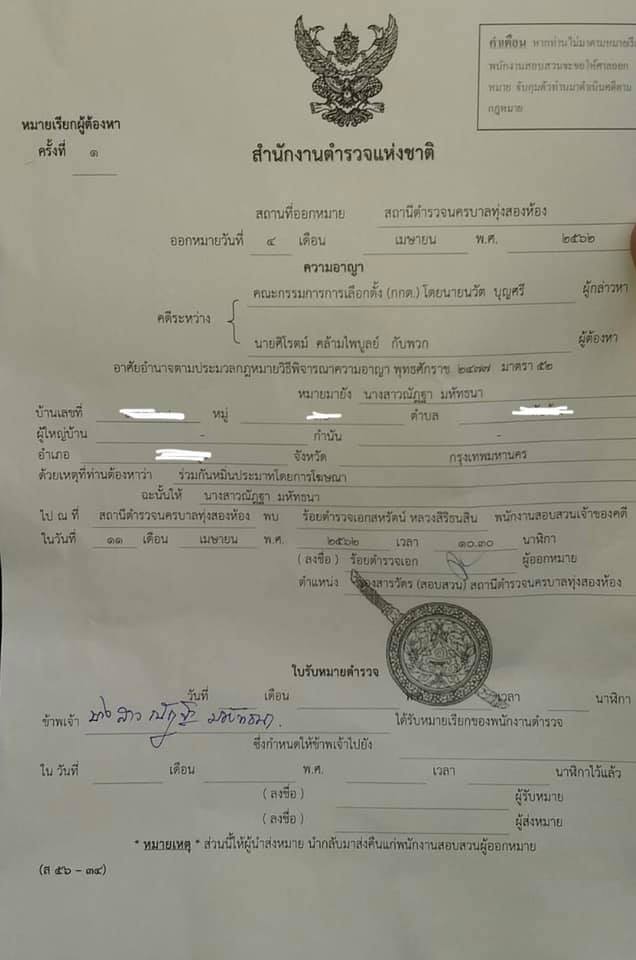 คำเตือน หากท่านไม่มาตามหมายเรี
พนักงานสอบสวนจะขอให้ศาลออก
หมาย จับกุมตัวท่านมาดำเนินคดีตาม
กฎหมาย
หมายเรียกผู้ต้องหา
ครั้งที่ ๑
สำนักงานตำรวจแห่งชาติ
สถานที่ออกหมาย สถานีตำรวจนครบาลทุ่งสองห้อง
ออกหมายวันที่ ๔ เดือน เมษายน พ.ศ. ๒๕๖๒
ความอาญา
คณะกรรมการการเลือกตั้ง (กกต.) โดยนายนวัต บุญศรี ผู้กล่าวหา
คดีระหว่าง
นายศิโรตม์ คล้ามไพบูลย์ กับพวก ผู้ต้องหา
อาศัยอำนาจตามประมวลกฎหมายวิธีพิจารณาความอาญา พุทธศักราช ๒๔๗๗ มาตรา ๕๒
หมายมายัง นางสาวณัฏฐา มหัทธนา
บ้านเลขที่ หมู่ ตำบล
ผู้ใหญ่บ้าน - กำนัน -
อำเภอ จังหวัด กรุงเทพมหานคร
ด้วยเหตุที่ท่านต้องหาว่า ร่วมกันหมิ่นประมาทโดยการโฆษณา
ฉะนั้นให้ นางสาวณัฏฐา มหัทธนา
ไป ณ ที่ สถานีตำรวจนครบาลทุ่งสองห้อง พบ ร้อยตำรวจเอกสหรัตน์ หลวงสิริธนสิน พนักงานสอบสวนเจ้าของคดี
ในวันที่ ๑๑ เดือน เมษายน พ.ศ. ๒๕๖๒ เวลา ๑๐.๓๐ นาฬิกา
( ลงชื่อ ) ร้อยตำรวจเอก ผู้ออกหมาย
ตำแหน่ง รองสารวัตร (สอบสวน) สถานีตำรวจนครบาลทุ่งสองห้อง
ใบรับหมายตำรวจ
วันที่ เดือน พ.ศ. เวลา นาฬิกา
ข้าพเจ้า นางสาว ณัฏฐา มหัทธนา ได้รับหมายเรียกของพนักงานตำรวจ
ซึ่งกำหนดให้ข้าพเจ้าไปยัง
ใน วันที่ เดือน พ.ศ. เวลา นาฬิกาไว้แล้ว
( ลงชื่อ ) ผู้รับหมาย
( ลงชื่อ ) ผู้ส่งหมาย
" หมายเหตุ " ส่วนนี้ให้ผู้นำส่งหมาย นำกลับมาส่งคืนแก่พนักงานสอบสวนผู้ออกหมาย
(ส ๕๖ - ๓๔)